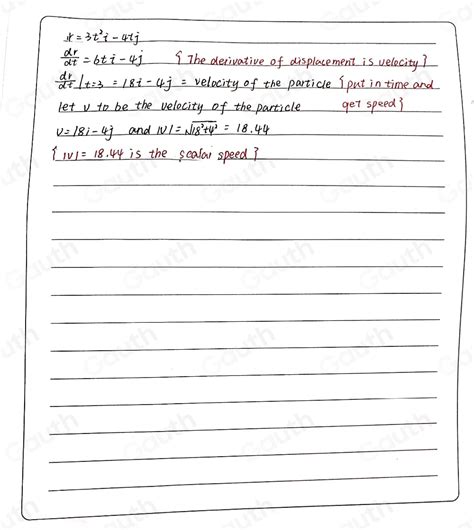 r = 3t²i - 4tj
dr/dt = 6ti - 4j { The derivative of displacement is velocity }
dr/dt |t=3 = 18i - 4j = velocity of the particle { put in time and get speed }
let v to be the velocity of the particle
v = 18i - 4j and |v| = √18²+4² = 18.44
{ |v| = 18.44 is the scalar speed }
Gauth